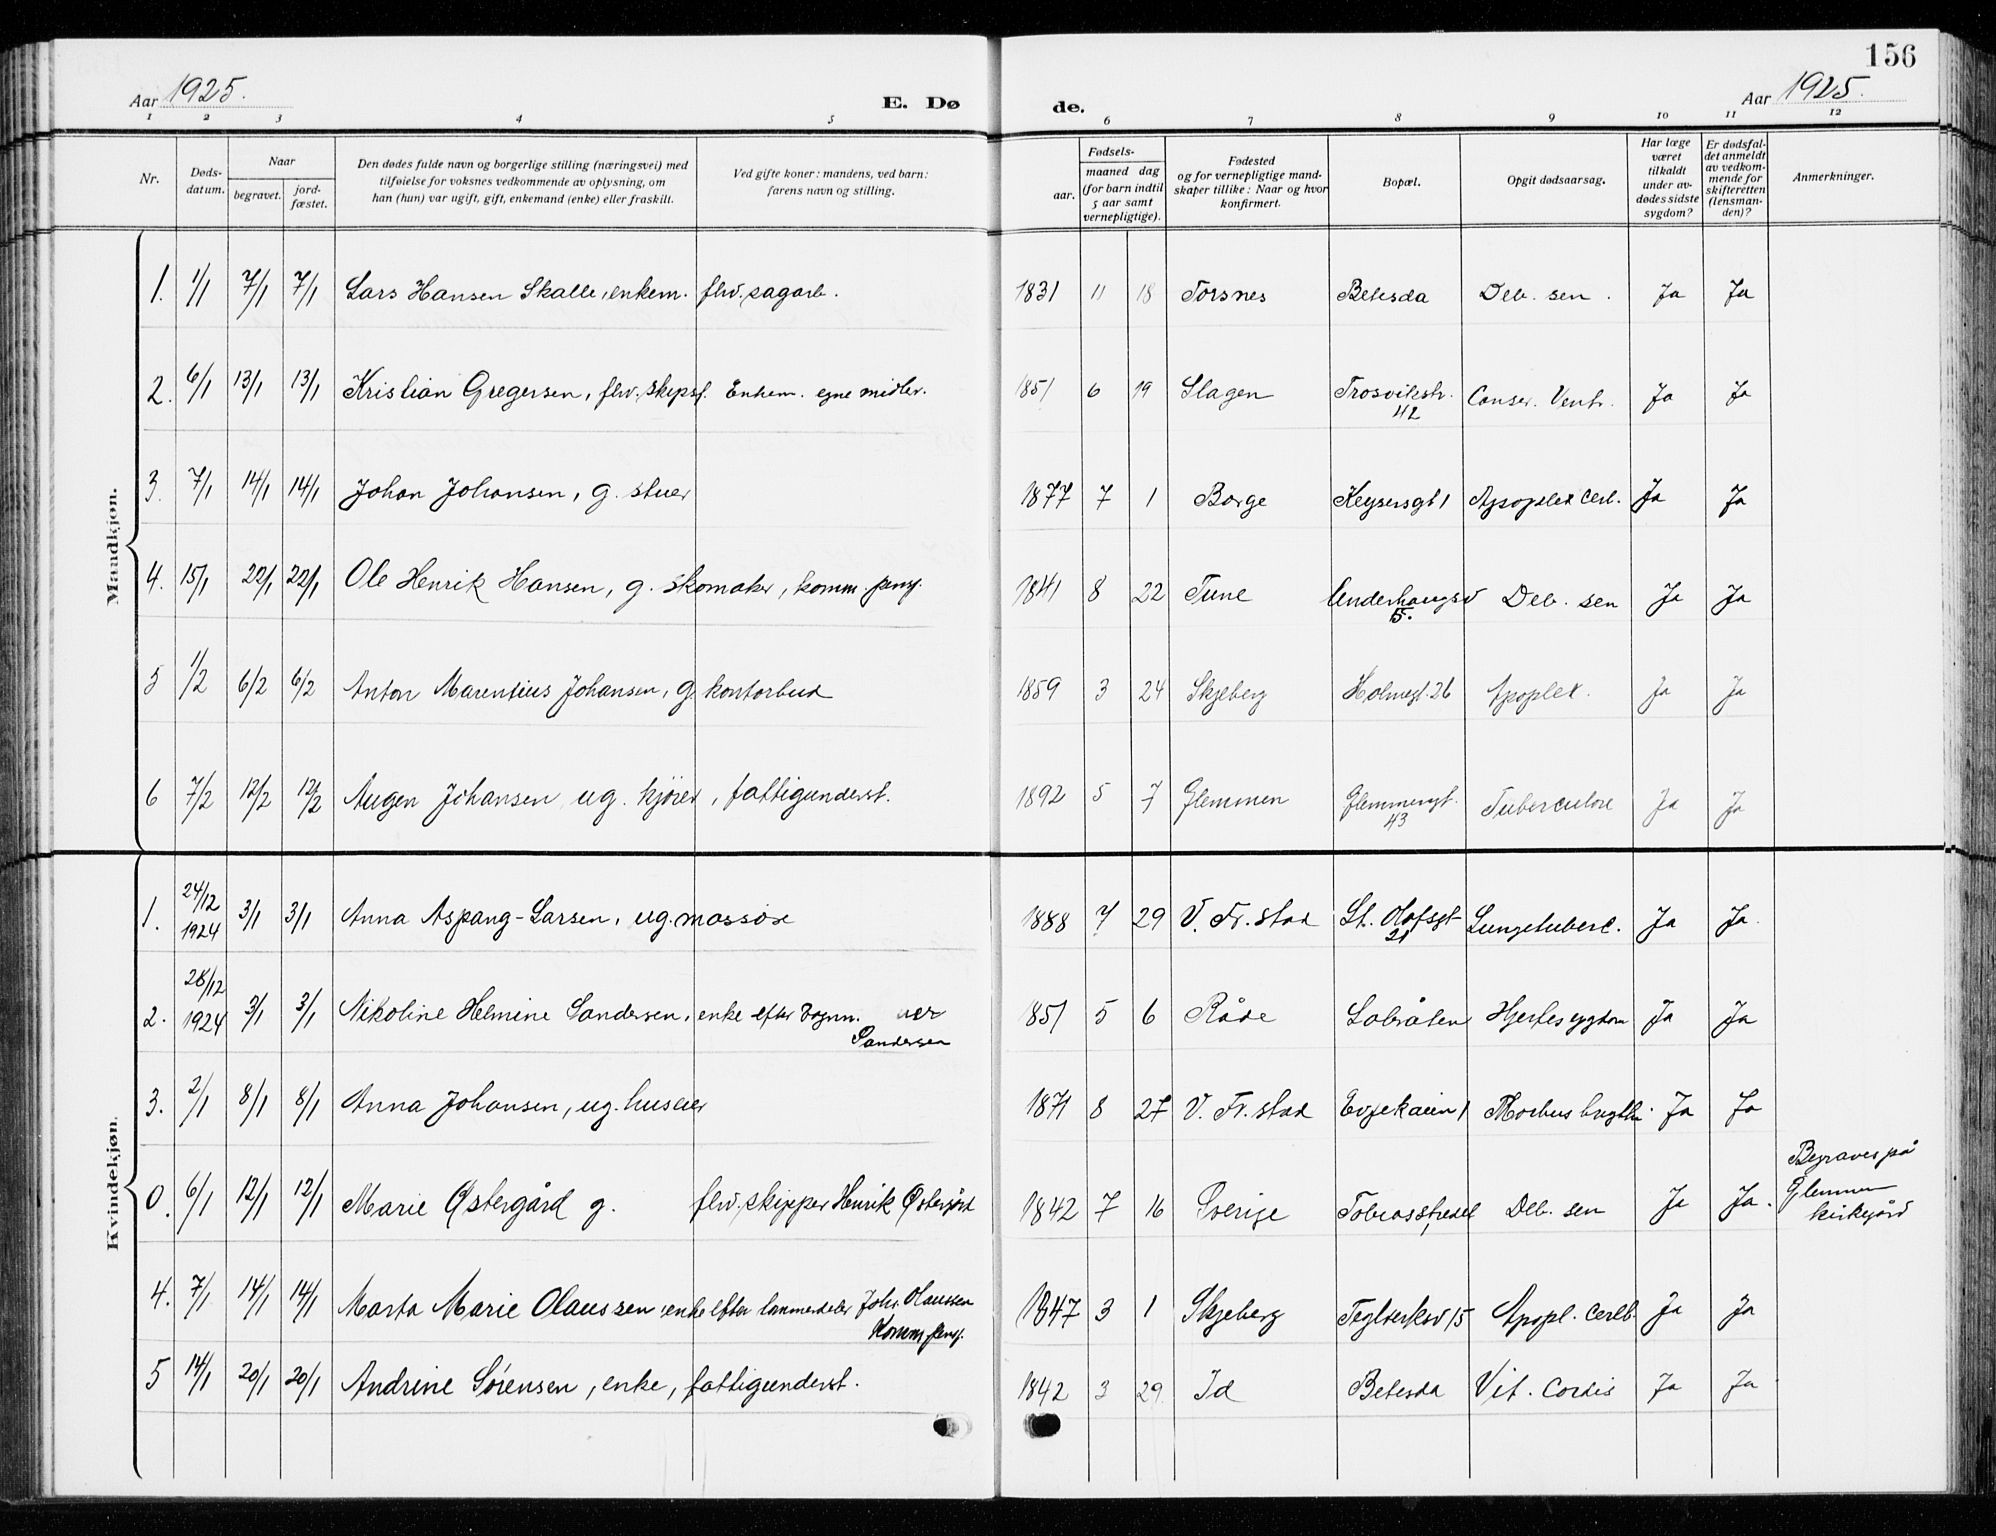 156
Aar 1925. E. Dø de. Aar 1925.
1 2 3 4 5 6 7 8 9 10 11 12
Nr. Døds-datum. Naar begravet. jord-fæstet. Den dødes fulde navn og borgerlige stilling (næringsvei) med tilføielse for voksnes vedkommende av oplysning, om han (hun) var ugift, gift, enkemand (enke) eller fraskilt. Ved gifte koner: mandens, ved barn: farens navn og stilling. Fødsels- aar. maaned dag (for barn indtil 5 aar samt vernepligtige). Fødested og for vernepligtige mand-skaper tillike: Naar og hvor konfirmert. Bopæl. Opgit dødsaarsag. Har læge været tilkaldt under av-dødes sidste sygdom? Er dødsfal-det anmeldt av vedkom-mende for skifteretten (lensman-den)? Anmerkninger.
Mandkjøn.
1. 1/1 7/1 7/1 Lars Hansen Skalle, enkem. flv. sagarb. 1831 11 18 Torsnes Betesda Deb. sen. Ja Ja
2. 6/1 13/1 13/1 Kristian Gregersen, flv. skipsf. Enkem. egne midler. 1851 6 19 Slagen Trosvikstr. 42 Ventr. Ja Ja
3. 7/1 14/1 14/1 Johan Johansen, g. stuer 1877 7 1 Borge Keysersgt 1 Apoplex cerb. Ja Ja
4. 15/1 22/1 22/1 Ole Henrik Hansen, g. skomaker, komm. pensj. 1841 8 22 Tune Underhaugsv 15. Deb. sen Ja Ja
5 1/2 6/2 6/2 Anton Marentius Johansen, g. kontorbud 1859 3 24 Skjeberg Holmegt. 26 Apoplex. Ja Ja
6 7/2 12/2 12/2 Augen Johansen ug. kjører, fattigunderst. 1892 5 7 Glemmen Glemmengt. 43 Tuberculose Ja Ja
Kvindekjøn.
1. 24/12 1924 3/1 3/1 Anna Aspang-Larsen, ug. massøse 1888 7 29 V. Fr. stad St. Olafsgt 21 Lungetuberc. Ja Ja.
2. 28/12 1924 3/1 3/1 Nikoline Helmine Sandersen, enke efter Sandersen 1851 5 6 Råde Labråten Hjertesygdom Ja Ja
3. 2/1 8/1 8/1 Anna Johansen, ug. huseier 1871 8 27 V. Fr. stad Evjekaien 1 Morbus Ja Ja
0. 6/1 12/1 12/1 Marie Østergård g. flv. skipper Henrik Østergård 1842 7 16 Sverige Tobiasstredet 1 Deb. sen Ja Ja. Begraves på Glemmen kirkegård
4. 7/1 14/1 14/1 Marta Marie Olaussen, enke efter tømmerdeler Johs. Olaussen Komm. pensj. 1847 3 1 Skjeberg Teglverksv 15 Apopl. cerb. Ja Ja
5 14/1 20/1 20/1 Andrine Sørensen, enke, fattigunderst. 1842 3 29. Id Betesda Vit. Cordis Ja Ja